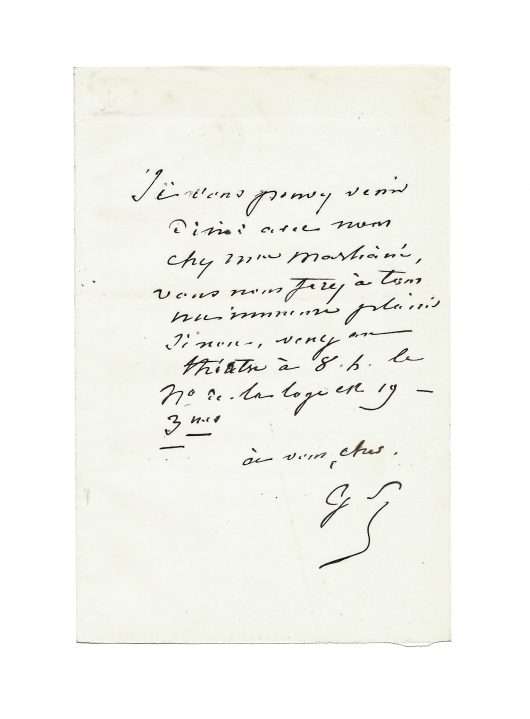 Si vous pouvez venir
dîner avec nous
chez Mme Marliani,
vous nous ferez à tous
un immense plaisir
Sinon, venez au
théâtre à 8. h. le
No de la loge est 19
3mes
à vous, cher.
G S